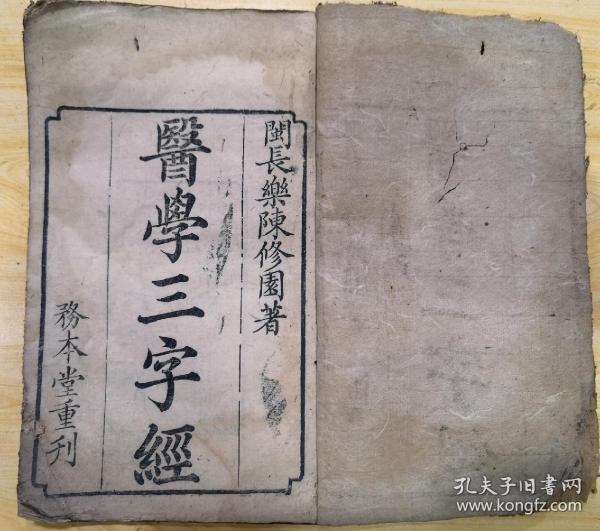 閩長樂陳修園著
醫學三字經
務本堂重刊
孔夫子旧书网